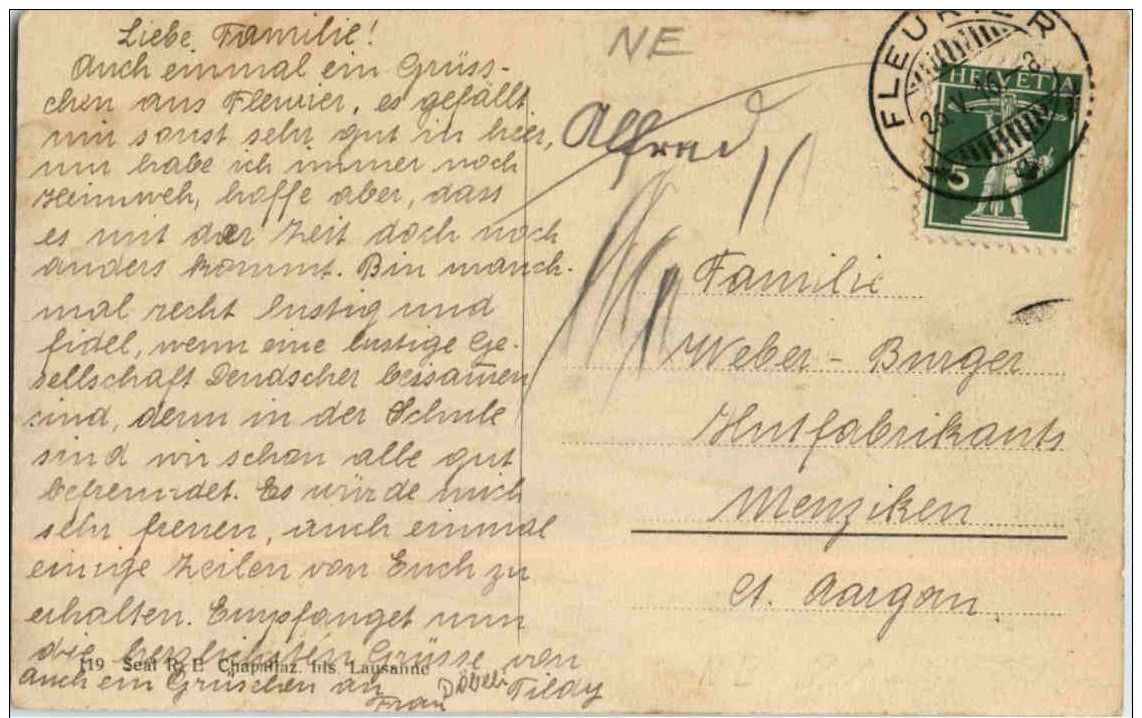 Liebe Familie!
Auch einmal ein Grüss-
chen aus Fleurier, es gefällt
mir sonst sehr gut in hier,
nur habe ich immer noch
Heimweh, hoffe aber, dass
es mit der Zeit doch noch
anders kommt. Bin manch-
mal recht lustig und
fidel, wenn eine lustige Ge-
sellschaft Deudscher beisamen
sind, denn in der Schule
sind wir schon alle gut
befreundet. Es würde mich
sehr freuen, auch einmal
einige Zeilen von Euch zu
erhalten. Empfanget nun
die herzlichsten Grüsse von
Tildy
Auch ein Grüschen an
Frau Döbeli
119 Seal R. E. Chapallaz fils, Lausanne
NE
Alfred
FLEURIER
25.V.16
HELVETIA
5
Familie
Weber-Burger
Hutfabrikants
Menziken
Ct. Aargau